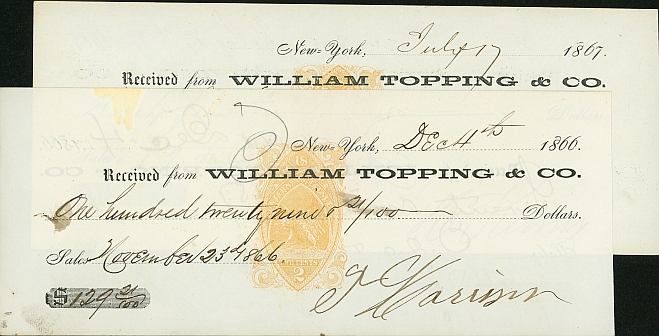 New-York, July 17 1867.
Received from WILLIAM TOPPING & CO.
New-York, Dec 4th 1866.
Received from WILLIAM TOPPING & CO.
One hundred twenty nine & 21/100 Dollars.
Sales November 23d 1866
$129 21/100
J Harrison